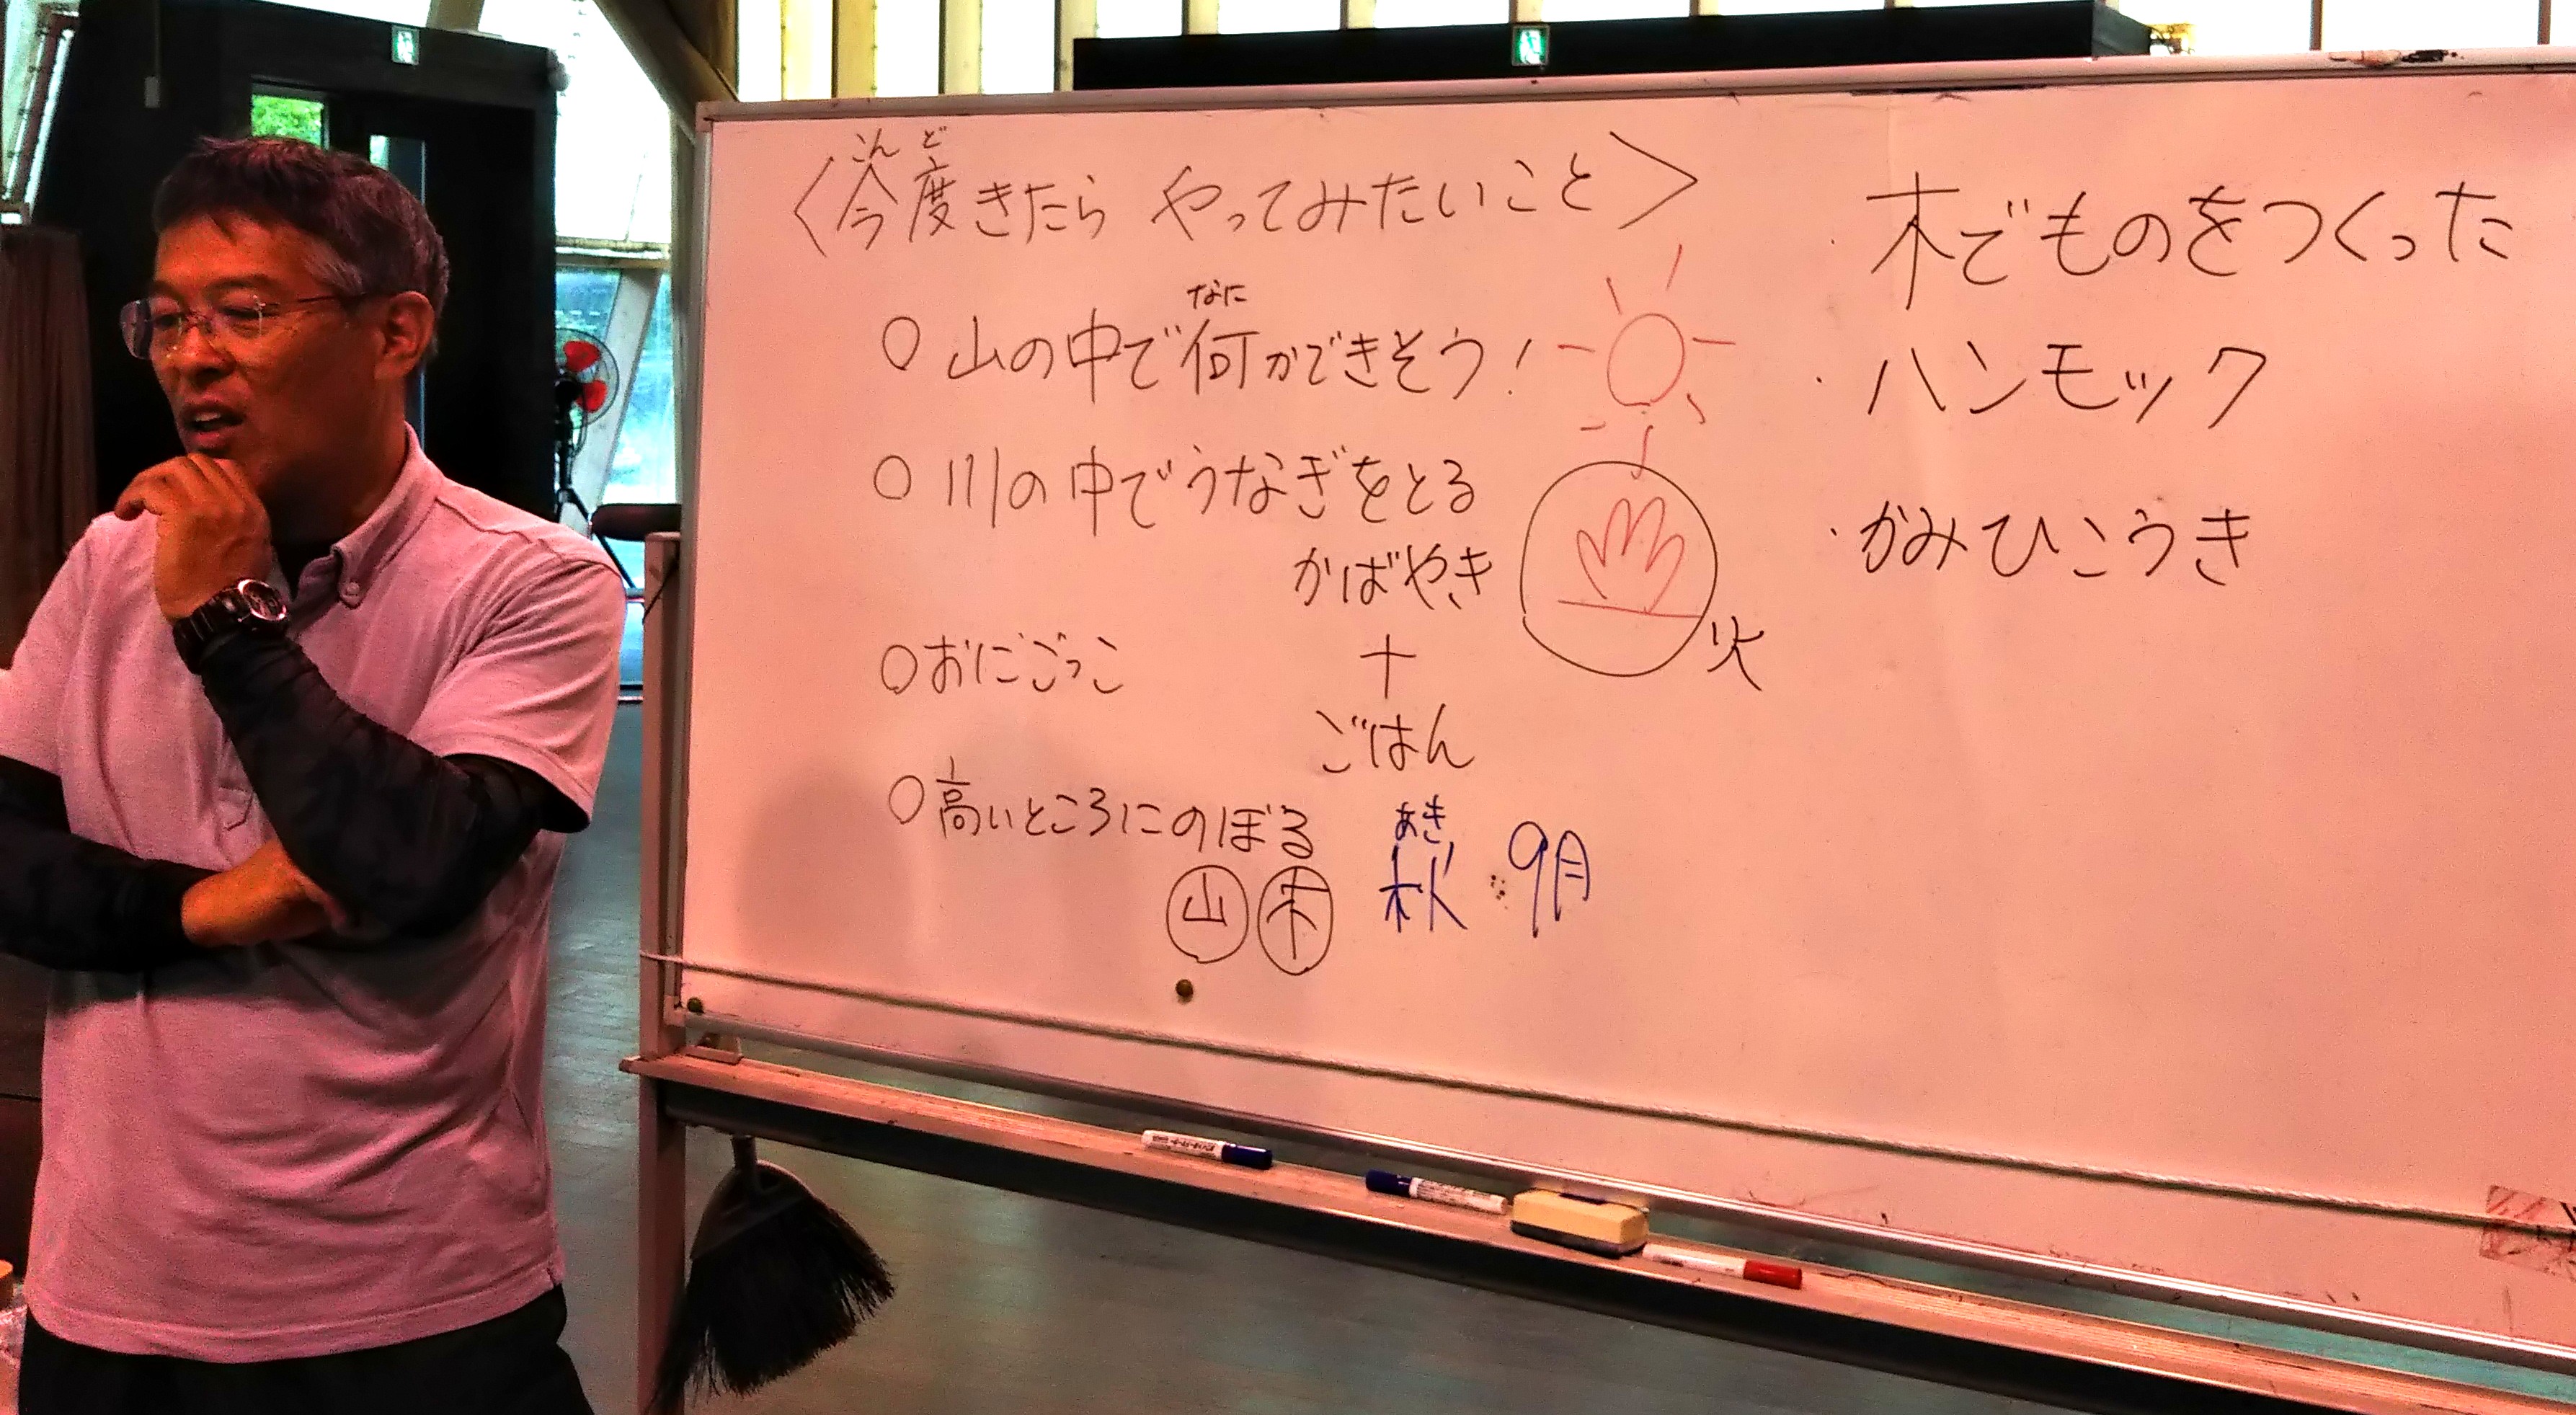 〈今度きたら やってみたいこと〉
こんど
○山の中で何かできそう!
なに
○川の中でうなぎをとる
かばやき
+
ごはん
火
○おにごっこ
○高いところにのぼる
山 木
あき
秋:9月
・木でものをつくった
・ハンモック
・かみひこうき